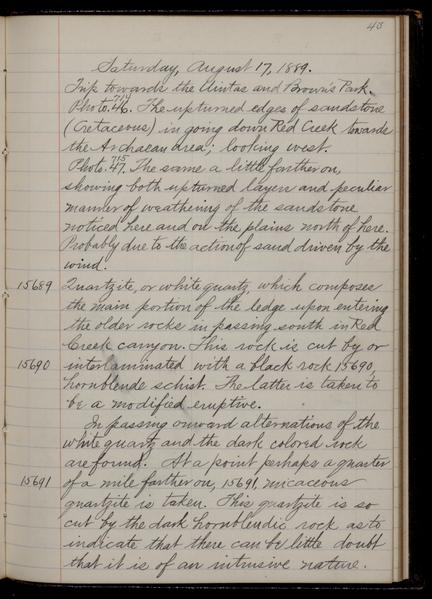 43
Saturday, August 17, 1889.
Trip towards the Uintas and Brown's Park.
Photo. 714 46. The upturned edges of sandstone
(Cretaceous) in going down Red Creek towards
the Archaean area; looking west.
Photo. 715 47. The same a little farther on,
showing both upturned layers and peculiar
manner of weathering of the sandstone
noticed here and on the plains north of here.
Probably due to the action of sand driven by the
wind.
15689 Quartzite, or white quartz, which composes
the main portion of the ledge upon entering
the older rocks in passing south in Red
Creek canyon. This rock is cut by or
15690 interlaminated with a black rock 15690,
hornblende schist. The latter is taken to
be a modified eruptive.
In passing onward alternations of the
white quartz and the dark colored rock
are found. At a point perhaps a quarter
15691 of a mile farther on, 15691, micaceous
quartzite is taken. This quartzite is so
cut by the dark hornblendic rock as to
indicate that there can be little doubt
that it is of an intrusive nature.